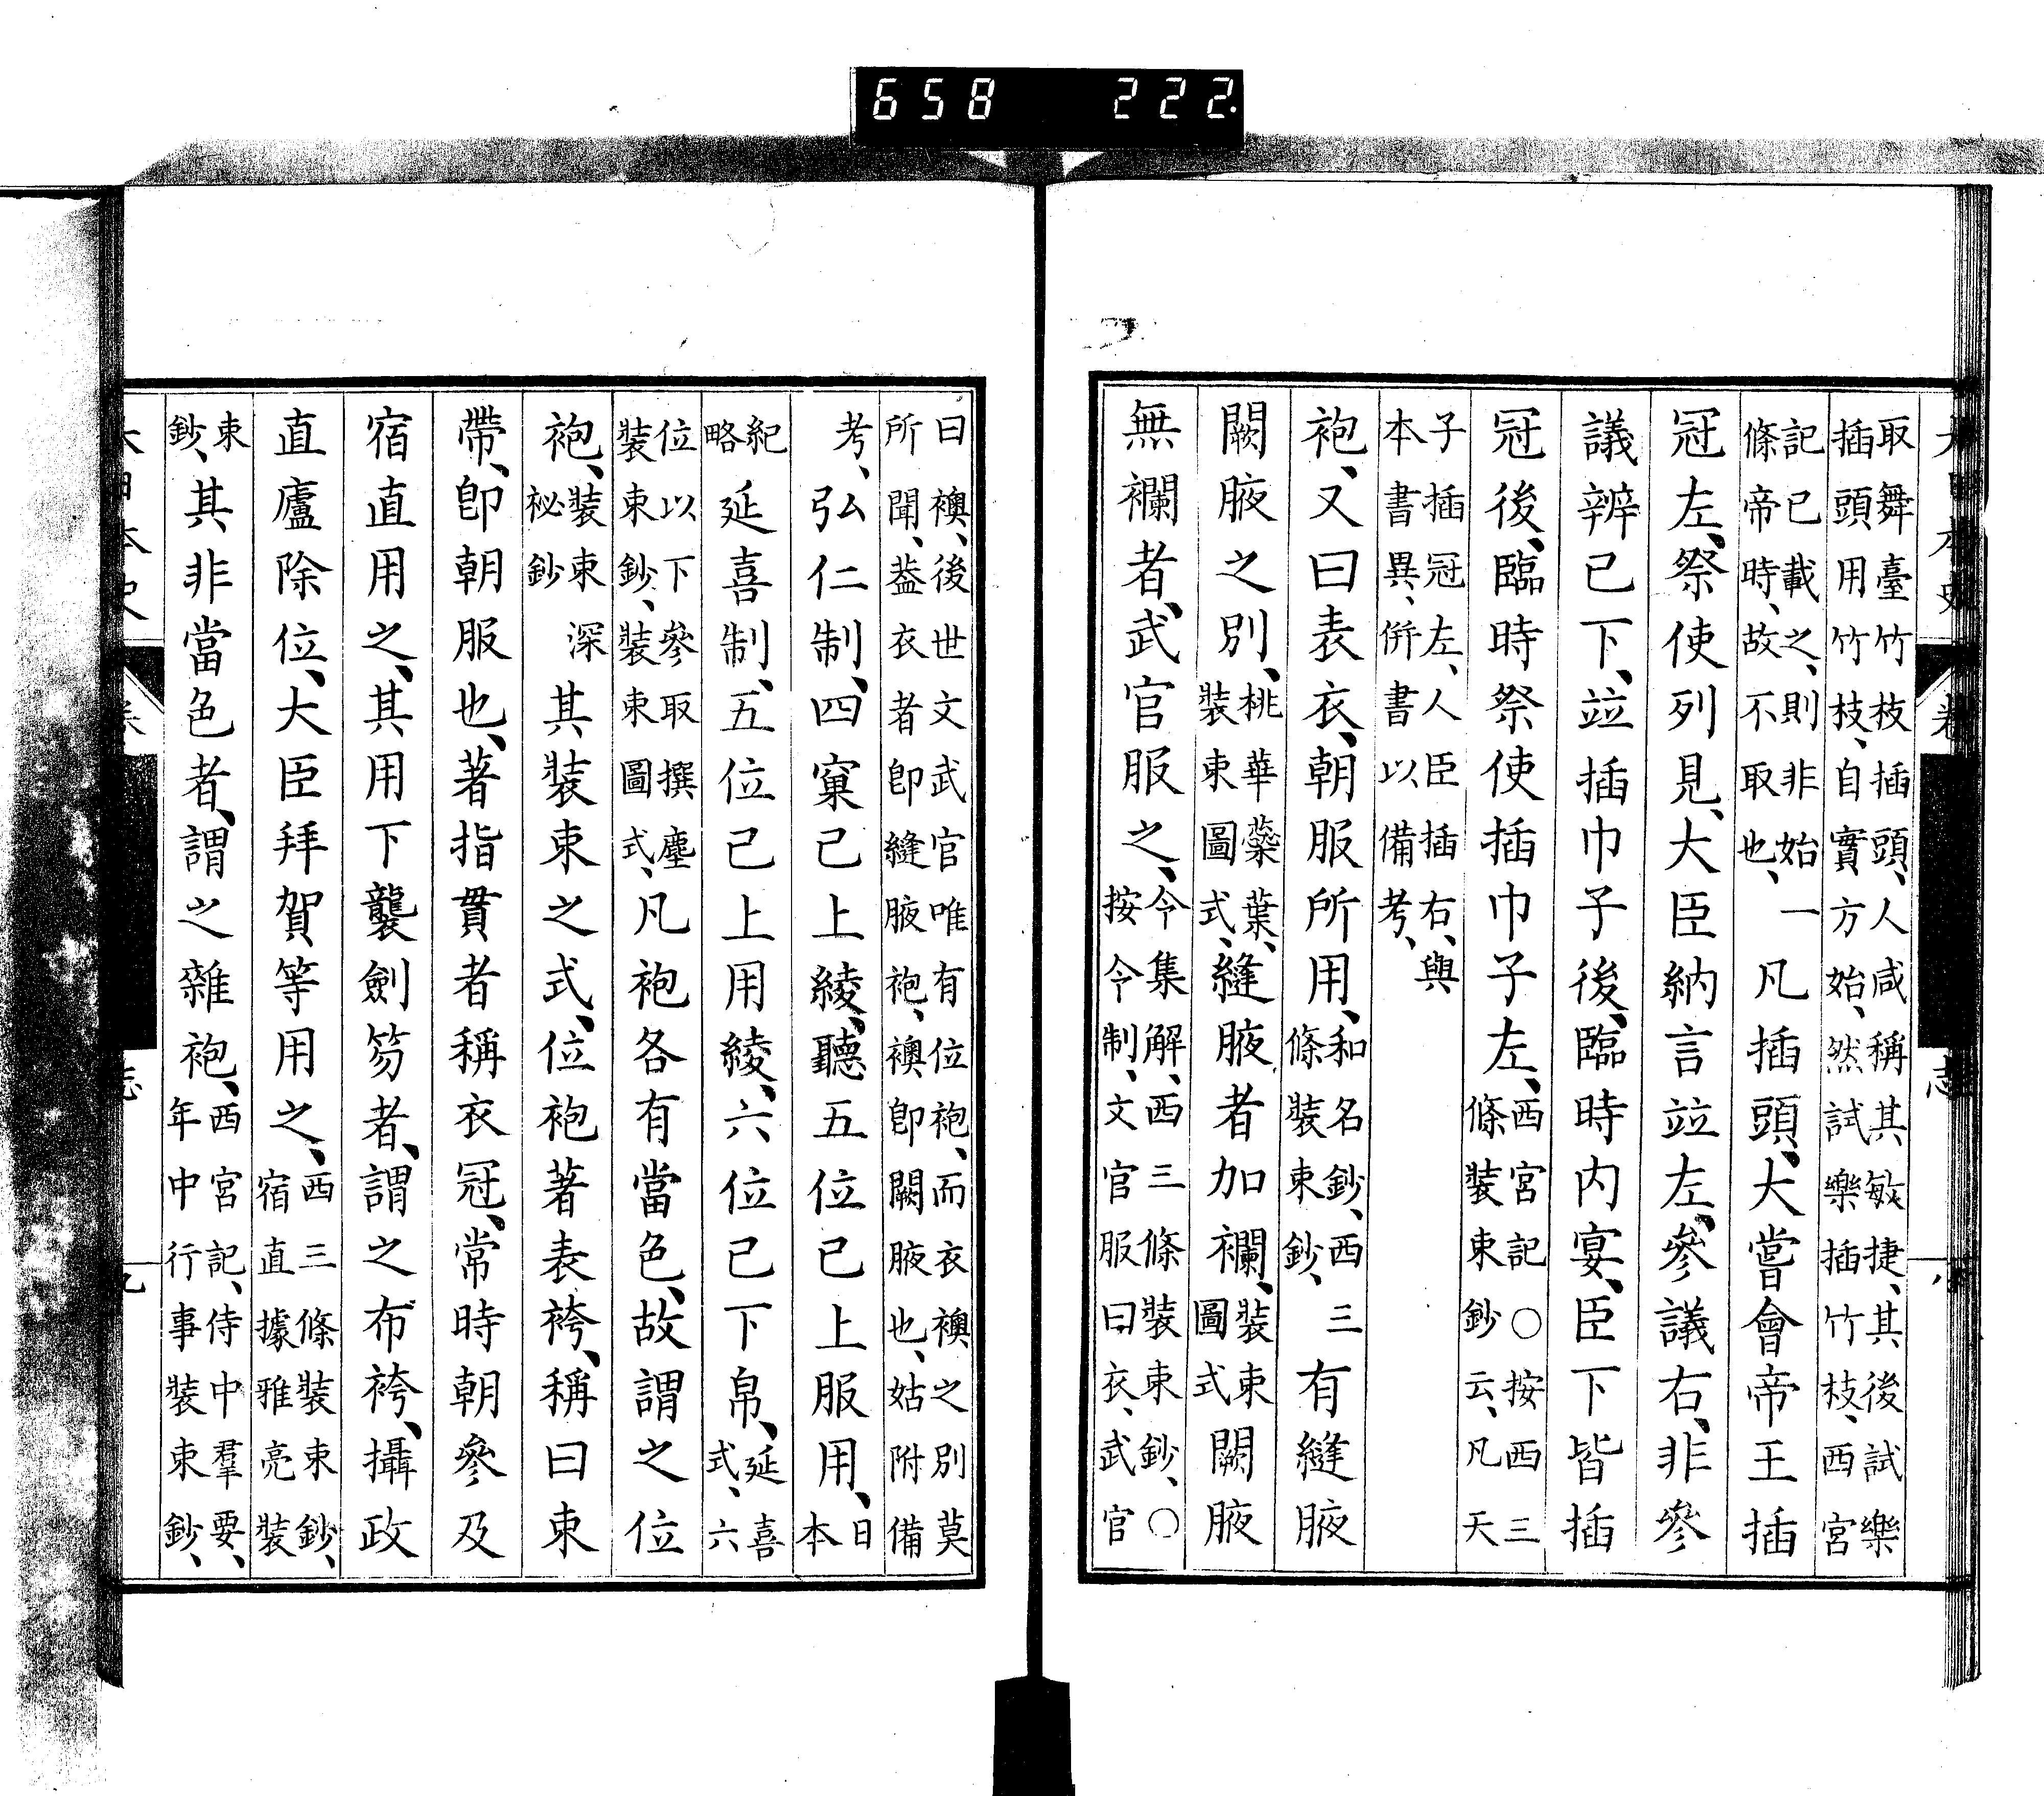 取舞臺竹枝插頭、人咸稱其敏捷、其後試樂
插頭用竹枝、自實方始、然試樂插竹枝、西宮
記已載之、則非始一條帝時、故不取也、凡插頭、大嘗會帝王插
冠左、祭使列見、大臣納言竝左、參議右、非參
議辨已下、竝插巾子後、臨時内宴、臣下皆插
冠後、臨時祭使插巾子左、西宮記○按西三條裝束鈔云、凡天
子插冠左、人臣插右、與
本書異、併書以備考、
袍、又曰表衣、朝服所用、和名鈔、西三條裝束鈔、有縫腋
闕腋之別、桃華蘂葉、裝束圖式、縫腋者加襴、裝束圖式闕腋
無襴者、武官服之、令集解、西三條裝束鈔、○按令制、文官服曰衣、武官
曰襖、後世文武官唯有位袍、而衣襖之別莫
所聞、葢衣者卽縫腋袍、襖卽闕腋也、姑附備
考、弘仁制、四窠已上綾、聽五位已上服用、日本
紀略延喜制、五位已上用綾、六位已下帛、延喜式、六
位以下參取撰塵裝束鈔、裝束圖式、凡袍各有當色、故謂之位
袍、裝束深祕鈔其裝束之式、位袍著表袴、稱曰束
帶、卽朝服也、著指貫者稱衣冠、常時朝參及
宿直用之、其用下襲劍笏者、謂之布袴、攝政
直廬除位、大臣拜賀等用之、西三條裝束鈔、宿直據雅亮裝
束鈔、其非當色者、謂之雜袍、西宮記、侍中羣要、年中行事裝束鈔、